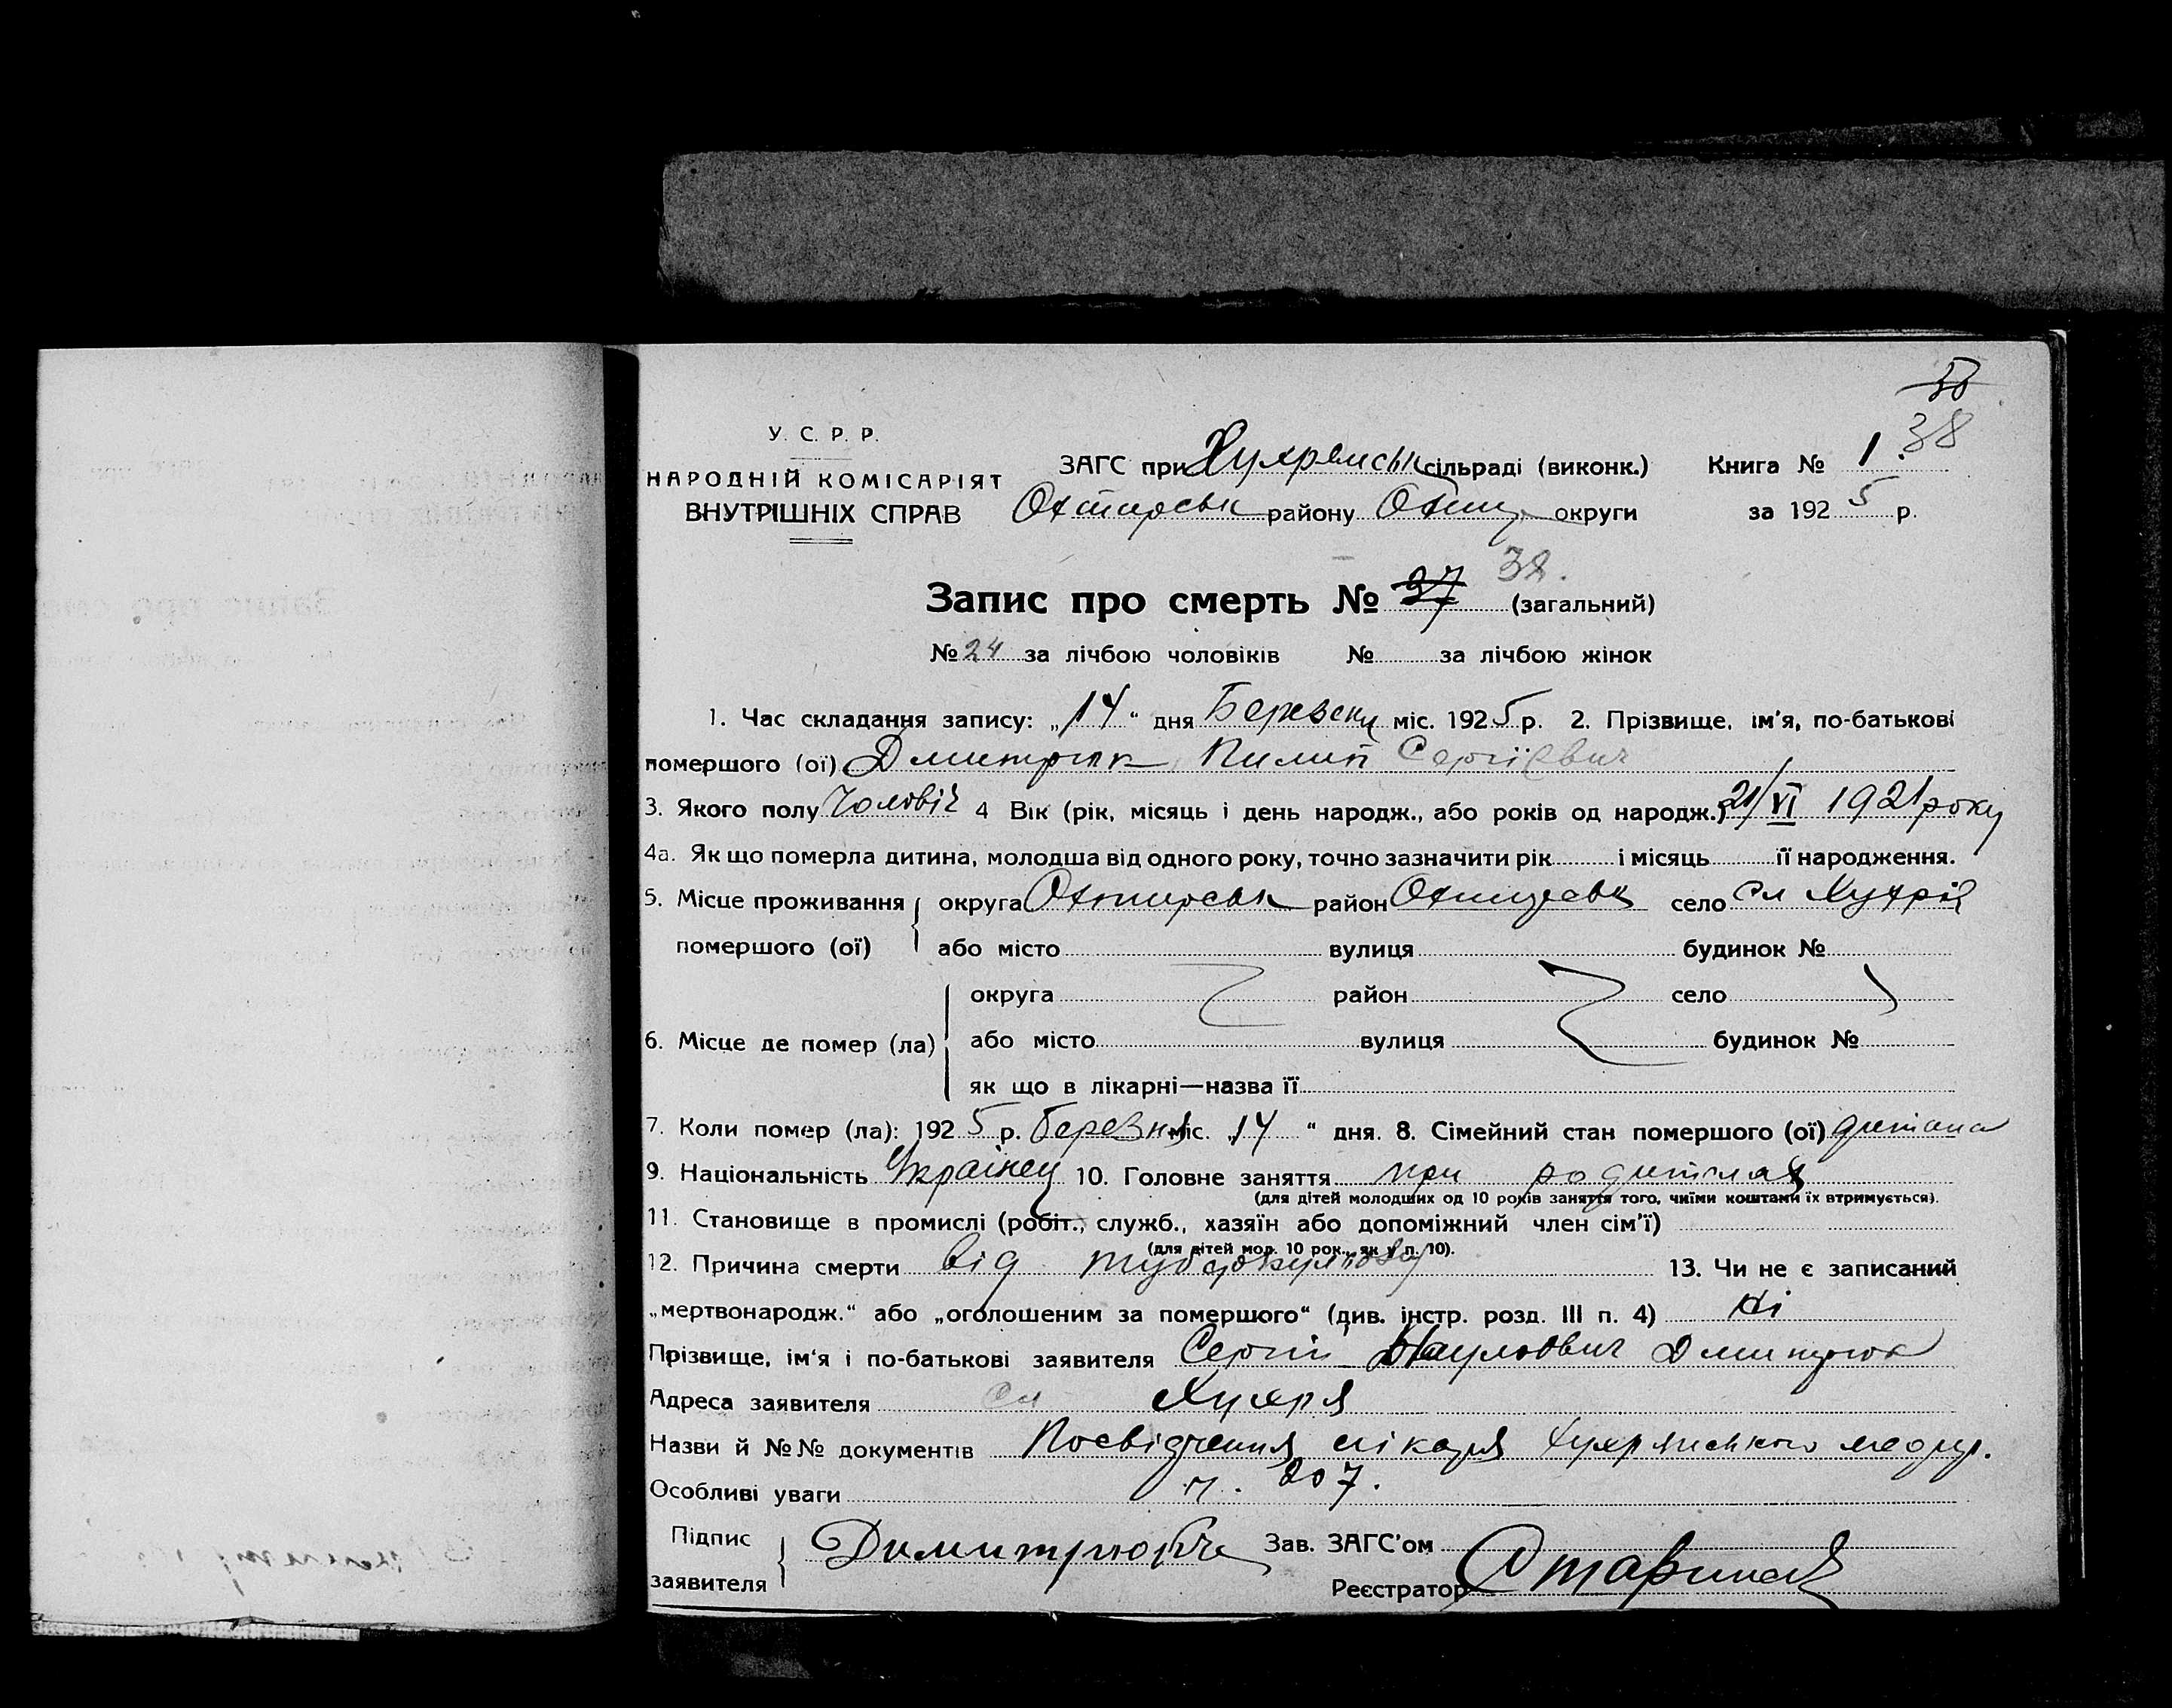 38
У. С. Р. Р.
НАРОДНІЙ КОМІСАРІЯТ
ВНУТРІШНІХ СПРАВ
ЗАГС при Хухрянськ сільраді (виконк.) Книга № 1.
Охтирськ району Охтир округи за 1925 р.
Запис про смерть № 37 38. (загальний)
№ 24 за лічбою чоловіків № за лічбою жінок
1. Час складання запису: „14“ дня Березня міс. 1925 р. 2. Прізвище, ім'я, по-батькові
помершого (ої) Дмитрюк Пилип Сергієвич
3. Якого полу Чоловіч 4 Вік (рік, місяць і день народж., або років од народж.) 21/VI 1921 року
4а. Як що померла дитина, молодша від одного року, точно зазначити рік і місяць її народження.
5. Місце проживання помершого (ої) округа Охтирськ район Охтирськ село сл Хухрія
або місто вулиця будинок №
6. Місце де помер (ла) округа район село
або місто вулиця будинок №
як що в лікарні—назва її
7. Коли помер (ла): 1925 р. березня міс. „14“ дня. 8. Сімейний стан помершого (ої) дитина
9. Національність Українец 10. Головне заняття при родителях
(для дітей молодших од 10 років заняття того, чиїми коштами їх втримується).
11. Становище в промислі (робіт., служб., хазяїн або допоміжний член сім'ї)
(для дітей мол. 10 рок., як у п. 10).
12. Причина смерти від туберкульозу 13. Чи не є записаний
„мертвонародж.“ або „оголошеним за помершого“ (див. інстр. розд. III п. 4) ні
Прізвище, ім'я і по-батькові заявителя Сергій Наумович Дмитрюк
Адреса заявителя сл Хухря
Назви й №№ документів Посвідчення лікаря Хухрянського медуч.
Особливі уваги ч. 207.
Підпис заявителя Зав. ЗАГС'ом
Реєстратор